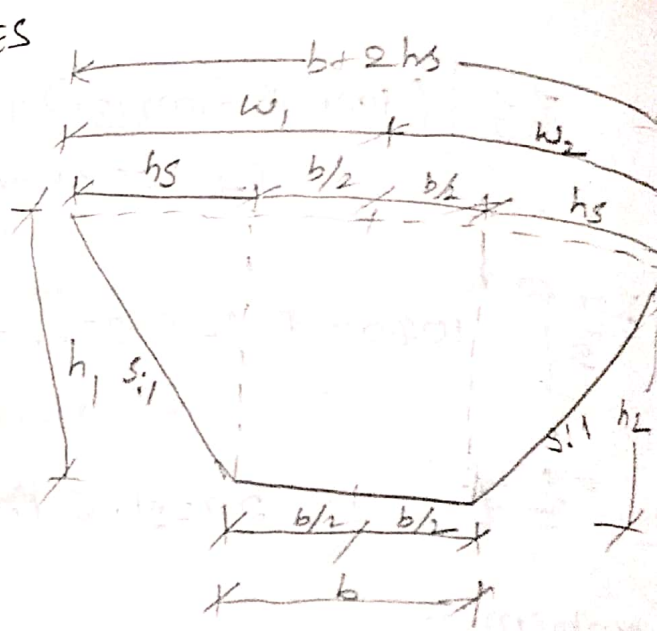 ES
b+2hs
W1 W2
hs b/2 b/2 hs
h1 s:1 s:1 h2
b/2 b/2
b